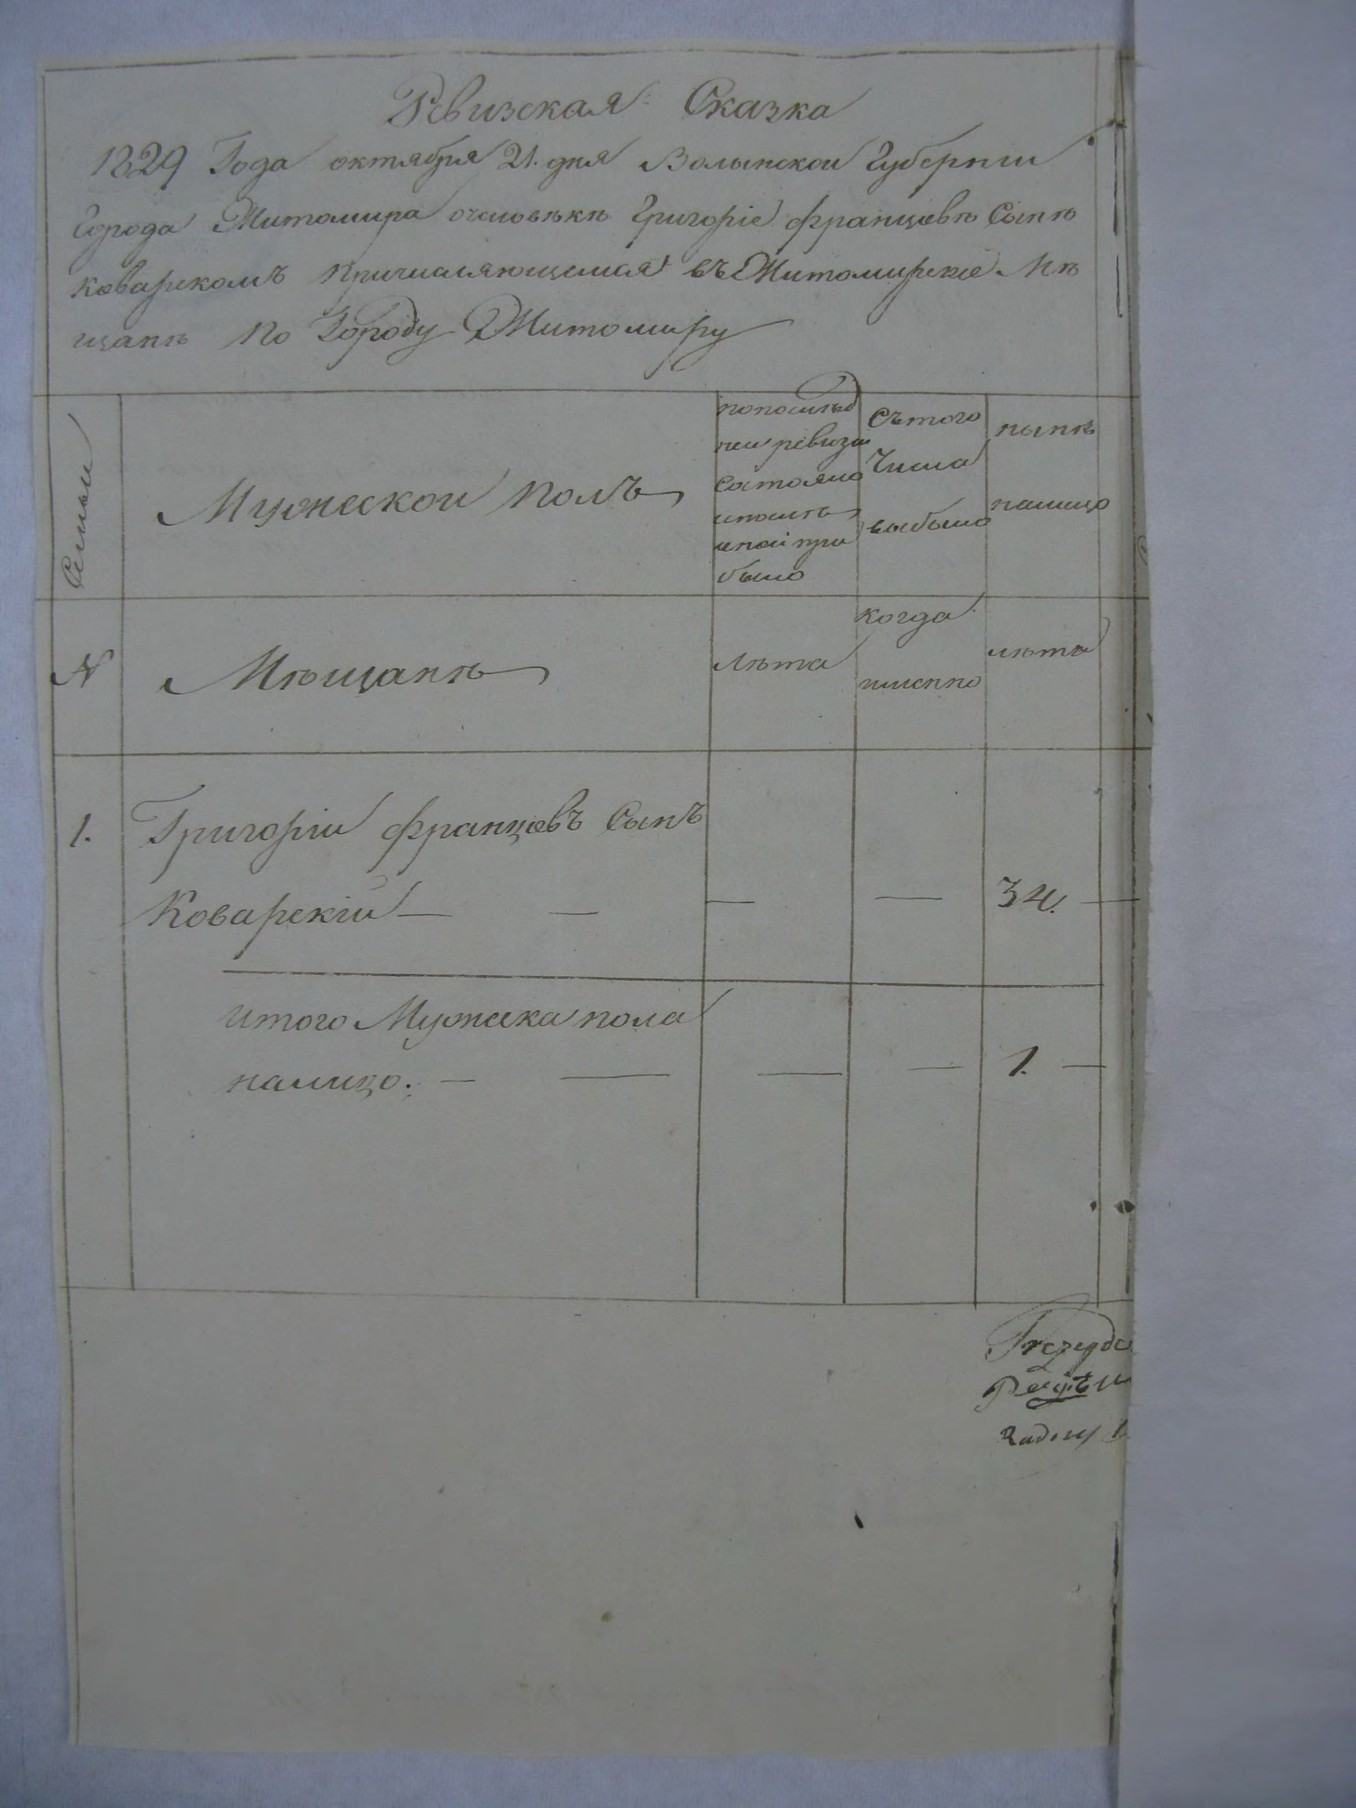 Ревизская Сказка
1829 Года октября 21. дня Волынской Губернии
Города Житомира очеловѣкѣ Григоріе францовѣ Сынѣ
коварскомъ причисляющемся въ Житомирскіе Мѣ
щанѣ по Городу Житомиру
Семьи
Мужескои полъ
попослѣд
неи ревизіи
состояло
ипослѣ
оной при
было
Сътого
Числа
выбыло
нынѣ
налицо
N
Мѣщанѣ
Лѣта
когда
именно
лѣта
1.
Григоріи францовъ Сынъ
Коварскіи — — — — 34. —
итого Мужеска пола
налицо. — — — — 1. —